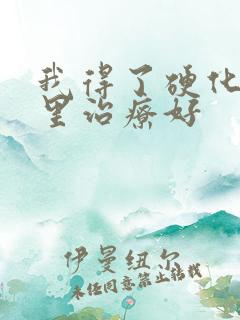 我得了硬化
里治疗好
伊曼纽尔
未经同意禁止转载